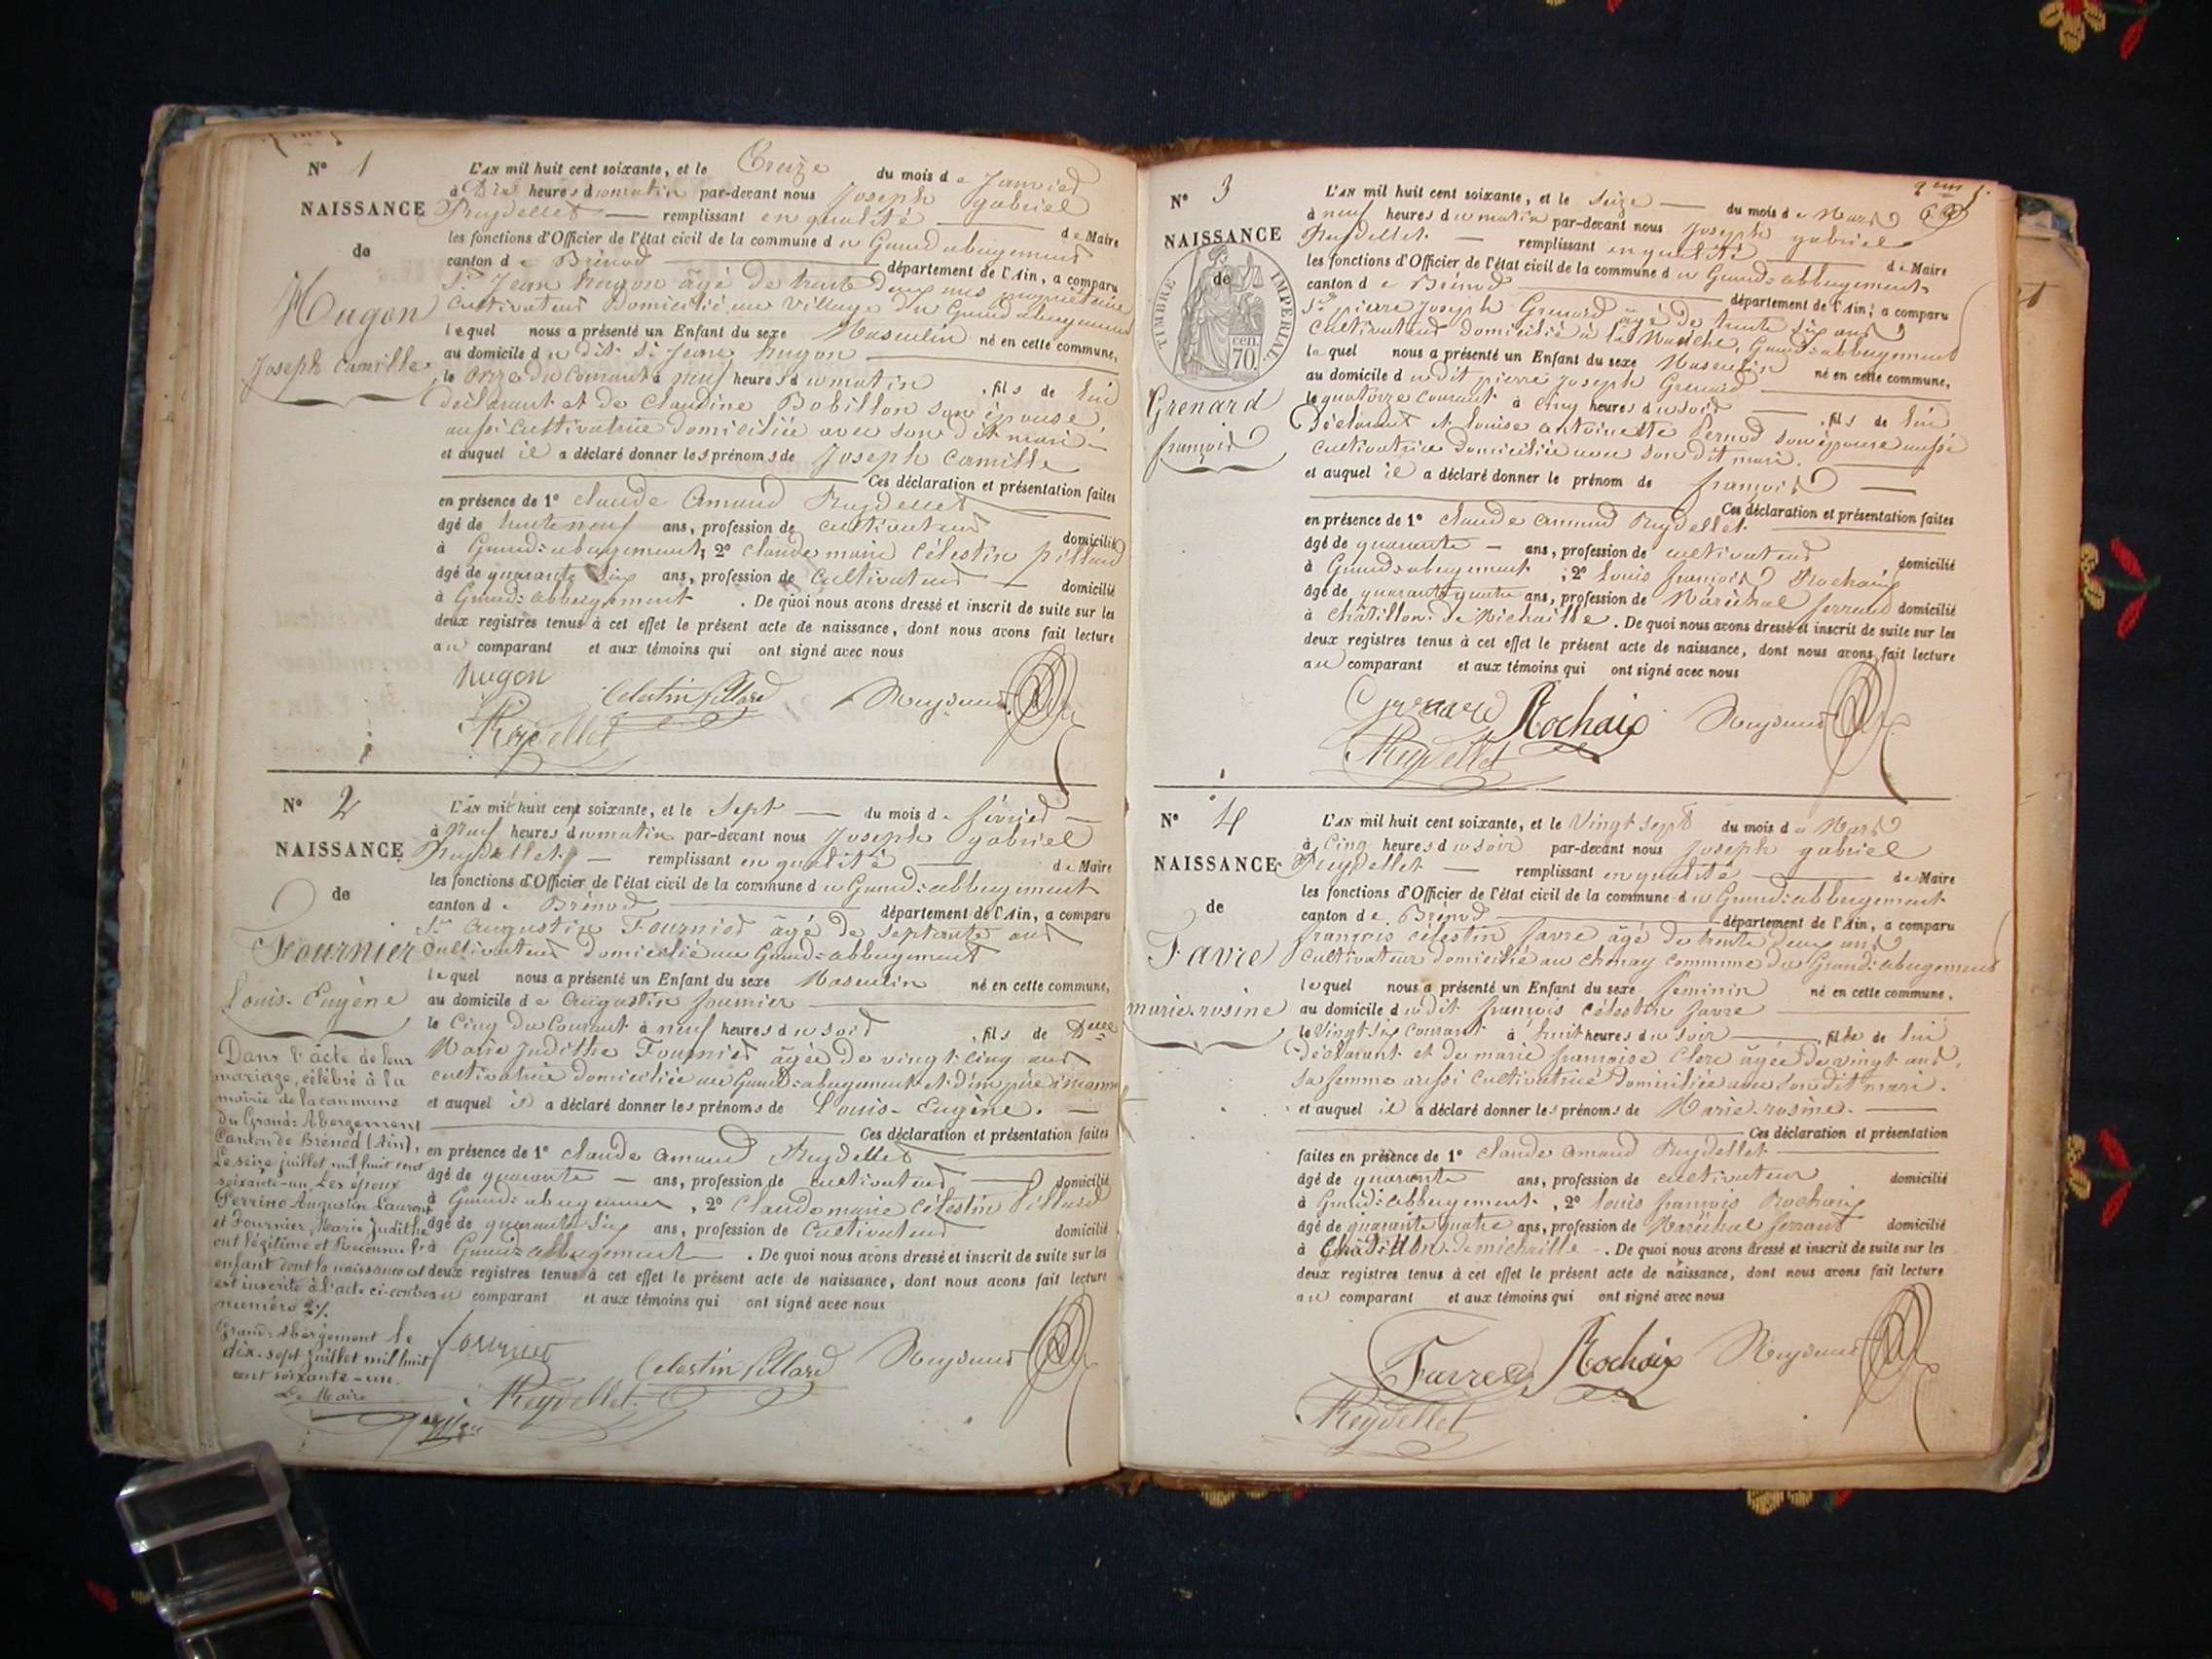 N° 1
NAISSANCE
de
Hugon
Joseph Camille
L'AN mil huit cent soixante, et le Treize du mois de Janvier
à Dix heures du matin par-devant nous Joseph gabriel
Reydellet remplissant en qualité de Maire
les fonctions d'Officier de l'état civil de la commune du Grand abergement
canton de Brénod département de l'Ain, a comparu
Sr. Jean hugon âgé de trente deux ans propriétaire
Cultivateur Domicilié au Village du Grand abergement
lequel nous a présenté un Enfant du sexe Masculin né en cette commune,
au domicile du dit Sr. Jean hugon
le Onze du Courant à neuf heures du matin, fils de lui
déclarant et de Claudine Bobillon son épouse,
aussi Cultivatrice domiciliée avec son dit mari
et auquel il a déclaré donner les prénoms de Joseph Camille
Ces déclaration et présentation faites
en présence de 1° Claude Amand Reydellet
âgé de trente neuf ans, profession de Cultivateur domicilié
à Grand=abergement, 2° Claude marie Célestin pillard
âgé de quarante Six ans, profession de Cultivateur domicilié
à Grand=abbergement. De quoi nous avons dressé et inscrit de suite sur les
deux registres tenus à cet effet le présent acte de naissance, dont nous avons fait lecture
au comparant et aux témoins qui ont signé avec nous
hugon
Celestin Pillard
Reydellet
N° 2
NAISSANCE
de
Fournier
Louis-Eugène
L'AN mil huit cent soixante, et le Sept du mois de février
à Neuf heures du matin par-devant nous Joseph gabriel
Reydellet remplissant en qualité de Maire
les fonctions d'Officier de l'état civil de la commune du Grand=abbergement
canton de Brénod département de l'Ain, a comparu
Sr. Augustin Fournier âgé de septante ans
Cultivateur domicilié au Grand=abbergement
lequel nous a présenté un Enfant du sexe Masculin né en cette commune,
au domicile de Augustin fournier
le Cinq du Courant à neuf heures du soir, fils de Delle
Marie Judithe Fournier âgée de vingt cinq ans
cultivatrice domiciliée au Grand=abergement et d'un père inconnu
et auquel il a déclaré donner les prénoms de Louis-Eugène.
Ces déclaration et présentation faites
en présence de 1° Claude Amand Reydellet
âgé de quarante ans, profession de cultivateur domicilié
à Grand=abergement, 2° Claude marie Célestin Pillard
âgé de quarante Six ans, profession de Cultivateur domicilié
à Grand=abbergement. De quoi nous avons dressé et inscrit de suite sur les
deux registres tenus à cet effet le présent acte de naissance, dont nous avons fait lecture
au comparant et aux témoins qui ont signé avec nous
fournier
Celestin Pillard
Reydellet
Dans l'acte de leur
mariage, célébré à la
mairie de la commune
du Grand=Abergement
Canton de Brénod (Ain),
Le seize juillet mil huit cent
soixante-un, Les époux
Perrino Augustin Laurent
et Fournier, Marie Judithe
ont légitimé et Reconnu l'
enfant dont la naissance est
est inscrite à l'acte ci-contre
numéro 2.
Grand=Abergement le
dix-sept juillet mil huit
cent soixante-un.
Le Maire
N° 3
NAISSANCE
de
TIMBRE IMPÉRIAL
cen. 70.
Grenard
françois
L'AN mil huit cent soixante, et le Seize du mois de Mars
à neuf heures du matin par-devant nous Joseph gabriel
Reydellet remplissant en qualité de Maire
les fonctions d'Officier de l'état civil de la commune du Grand=abbergement
canton de Brénod département de l'Ain, a comparu
Sr. pierre Joseph Grenard âgé de trente six ans
Cultivateur domicilié à la Manche, Grand=abbergement
lequel nous a présenté un Enfant du sexe Masculin né en cette commune,
au domicile du dit pierre Joseph Grenard
le quatorze Courant à Cinq heures du soir, fils de lui
Déclarant et louise antoinette Pernod son épouse aussi
cultivatrice domiciliée avec son dit mari.
et auquel il a déclaré donner le prénom de françois
Ces déclaration et présentation faites
en présence de 1° Claude Amand Reydellet
âgé de quarante ans, profession de cultivateur domicilié
à Grand=abergement; 2° Louis françois Rochaix
âgé de quarante quatre ans, profession de Maréchal ferrand domicilié
à Châtillon de Michaille. De quoi nous avons dressé et inscrit de suite sur les
deux registres tenus à cet effet le présent acte de naissance, dont nous avons fait lecture
au comparant et aux témoins qui ont signé avec nous
Grenard Rochaix
Reydellet
N° 4
NAISSANCE
de
Favre
marie-rosine
L'AN mil huit cent soixante, et le Vingt sept du mois de Mars
à Cinq heures du soir par-devant nous Joseph gabriel
Reydellet remplissant en qualité de Maire
les fonctions d'Officier de l'état civil de la commune du Grand=abbergement
canton de Brénod département de l'Ain, a comparu
françois célestin favre âgé de trente deux ans
Cultivateur domicilié au Chenay commune du Grand=abergement
lequel nous a présenté un Enfant du sexe féminin né en cette commune,
au domicile du dit françois célestin favre
le Vingt six Courant à huit heures du soir, fille de lui
déclarant et de marie françoise Clerc âgée de vingt ans,
sa femme aussi Cultivatrice domiciliée avec son dit mari.
et auquel il a déclaré donner les prénoms de Marie-rosine.
Ces déclaration et présentation
faites en présence de 1° Claude Amand Reydellet
âgé de quarante ans, profession de cultivateur domicilié
à Grand=abbergement, 2° Louis françois Rochaix
âgé de quarante quatre ans, profession de Maréchal ferrant domicilié
à Châtillon de michaille. De quoi nous avons dressé et inscrit de suite sur les
deux registres tenus à cet effet le présent acte de naissance, dont nous avons fait lecture
au comparant et aux témoins qui ont signé avec nous
Favre Rochaix
Reydellet